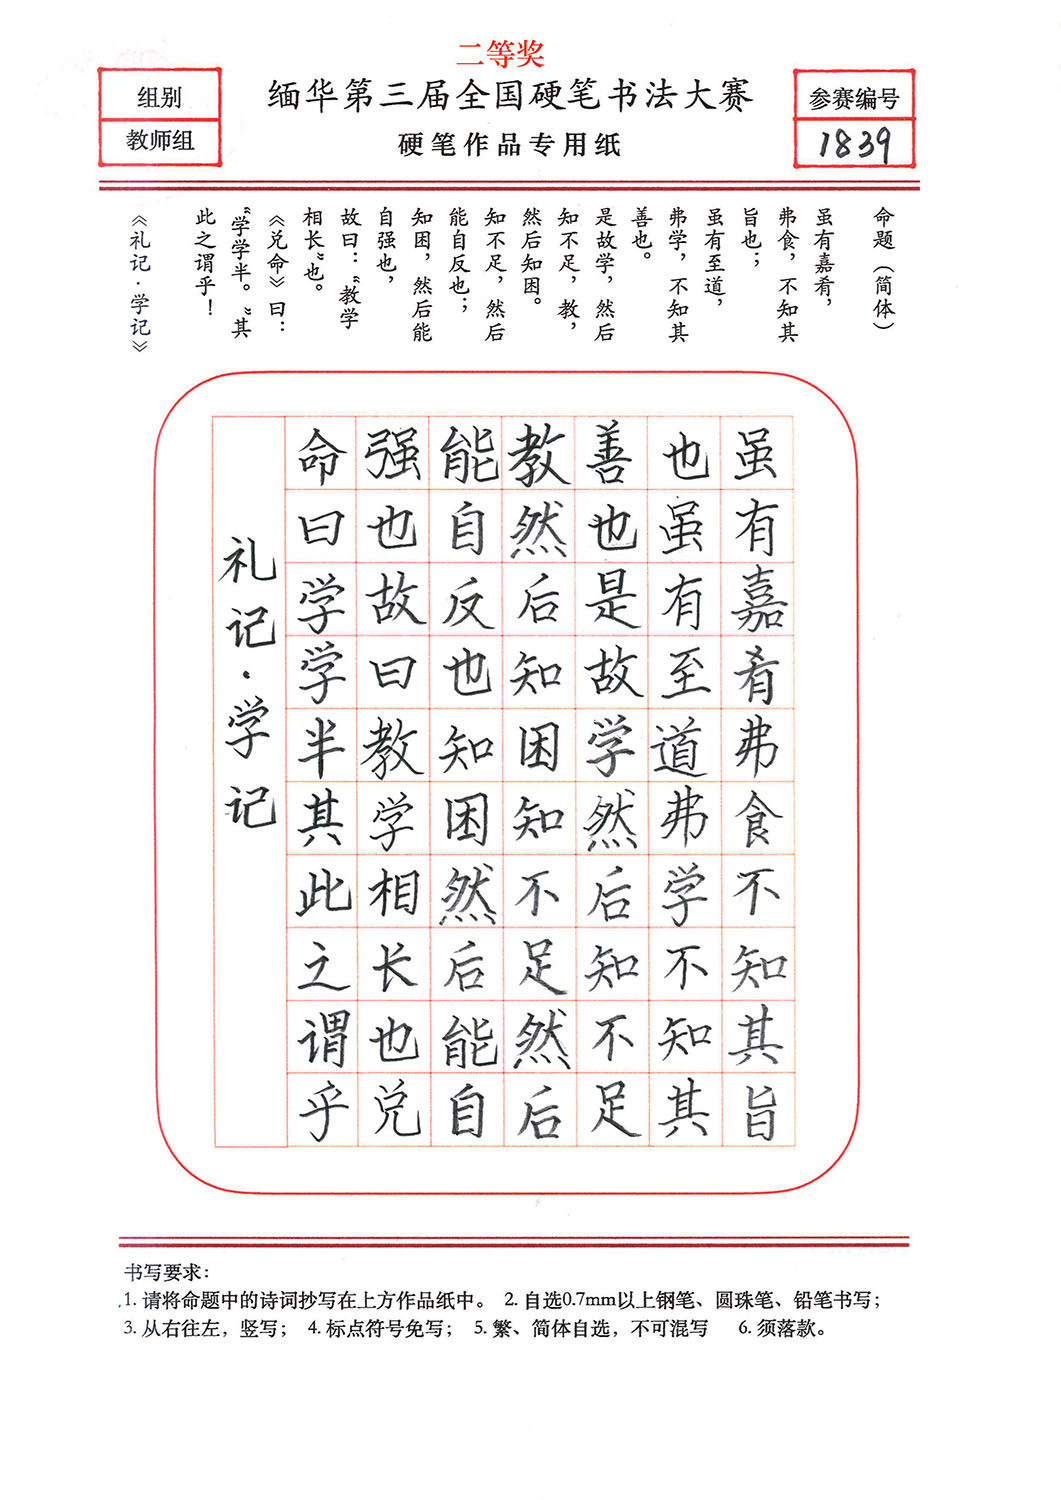 二等奖
组别
教师组
缅华第三届全国硬笔书法大赛
硬笔作品专用纸
参赛编号
1839
命题（简体）
虽有嘉肴，
弗食，不知其
旨也；
虽有至道，
弗学，不知其
善也。
是故学，然后
知不足，教，
然后知困。
知不足，然后
能自反也；
知困，然后能
自强也，
故曰：“教学
相长”也。
《兑命》曰：
“学学半。”其
此之谓乎！
《礼记·学记》
虽有嘉肴弗食不知其旨
也虽有至道弗学不知其
善也是故学然后知不足
教然后知困知不足然后
能自反也知困然后能自
强也故曰教学相长也兑
命曰学学半其此之谓乎
礼记·学记
书写要求：
1. 请将命题中的诗词抄写在上方作品纸中。 2. 自选0.7mm以上钢笔、圆珠笔、铅笔书写；
3. 从右往左，竖写； 4. 标点符号免写； 5. 繁、简体自选，不可混写 6. 须落款。